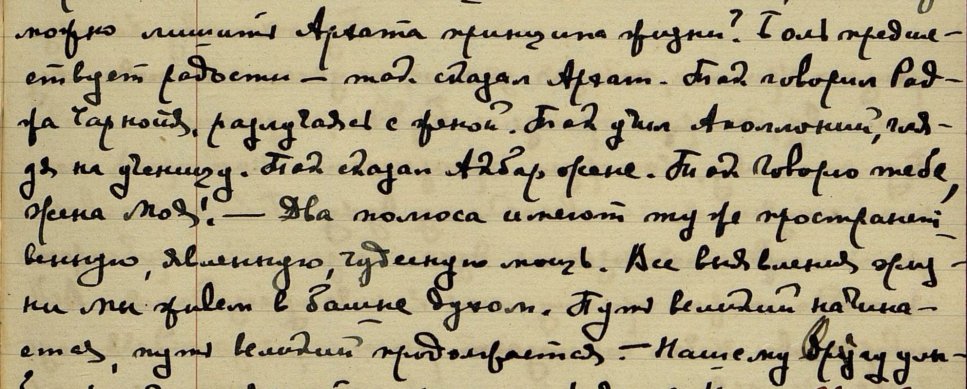 можно лишить Архата принципа жизни? Боль предше-
ствует радости — так сказал Архат. Так говорил Рад-
жа Чарнойя, разлучаясь с женой. Так учил Аполлоний, гля-
дя на ученицу. Так сказал Акбар жене. Так Говорю тебе,
жена Моя! — Два полюса имеют ту же пространст
венную, явленную, чудесную мощь. Все выявления жиз-
ни мы живем в башне духом. Путь великий начина-
ется, путь великий продолжается. — Нашему Другу